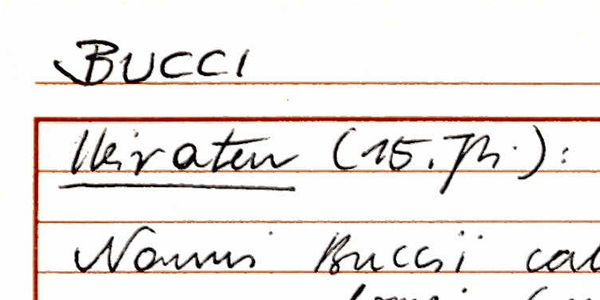 BUCCI
Heiraten (15. Jh.):
Nanni Buccii